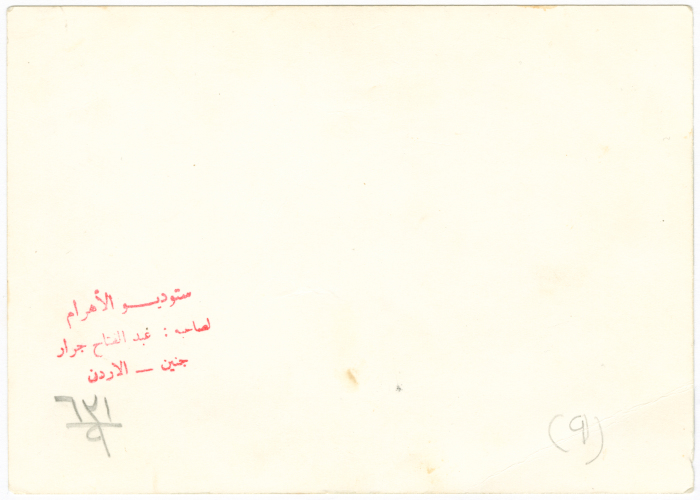 ستوديو الأهرام
لصاحبه : عبد الفتاح جرار
جنين – الاردن
٦٢١
٩
(٩)